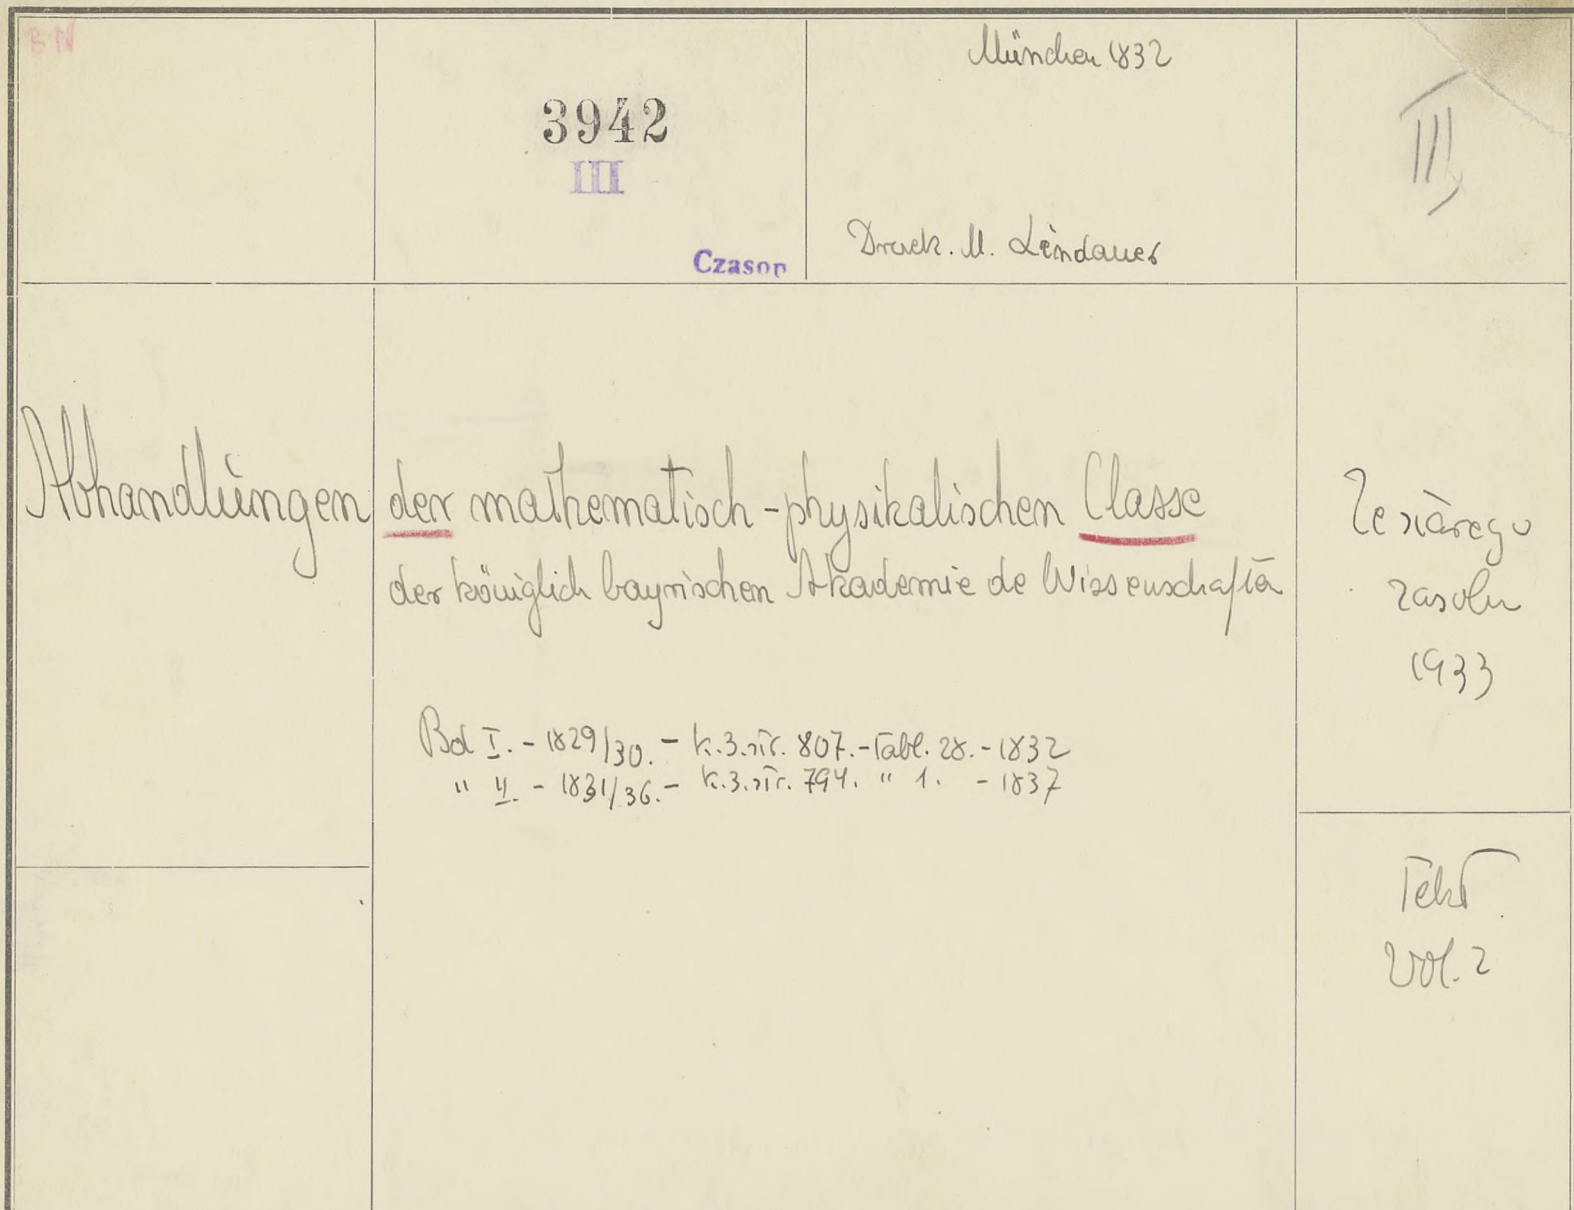 BN
3942
III
Czasop
München 1832
Druck. M. Lindauer
III
Abhandlungen der mathematisch-physikalischen Classe
der königlich bayrischen Akademie de Wissenschaften
Bd I. - 1829/30. - k.3.str. 807. - Tabl. 28. - 1832
" II. - 1831/36. - k.3.str. 794. " 1. - 1837
Ze starego
zasobu
1933
Tekt
Vol. 2